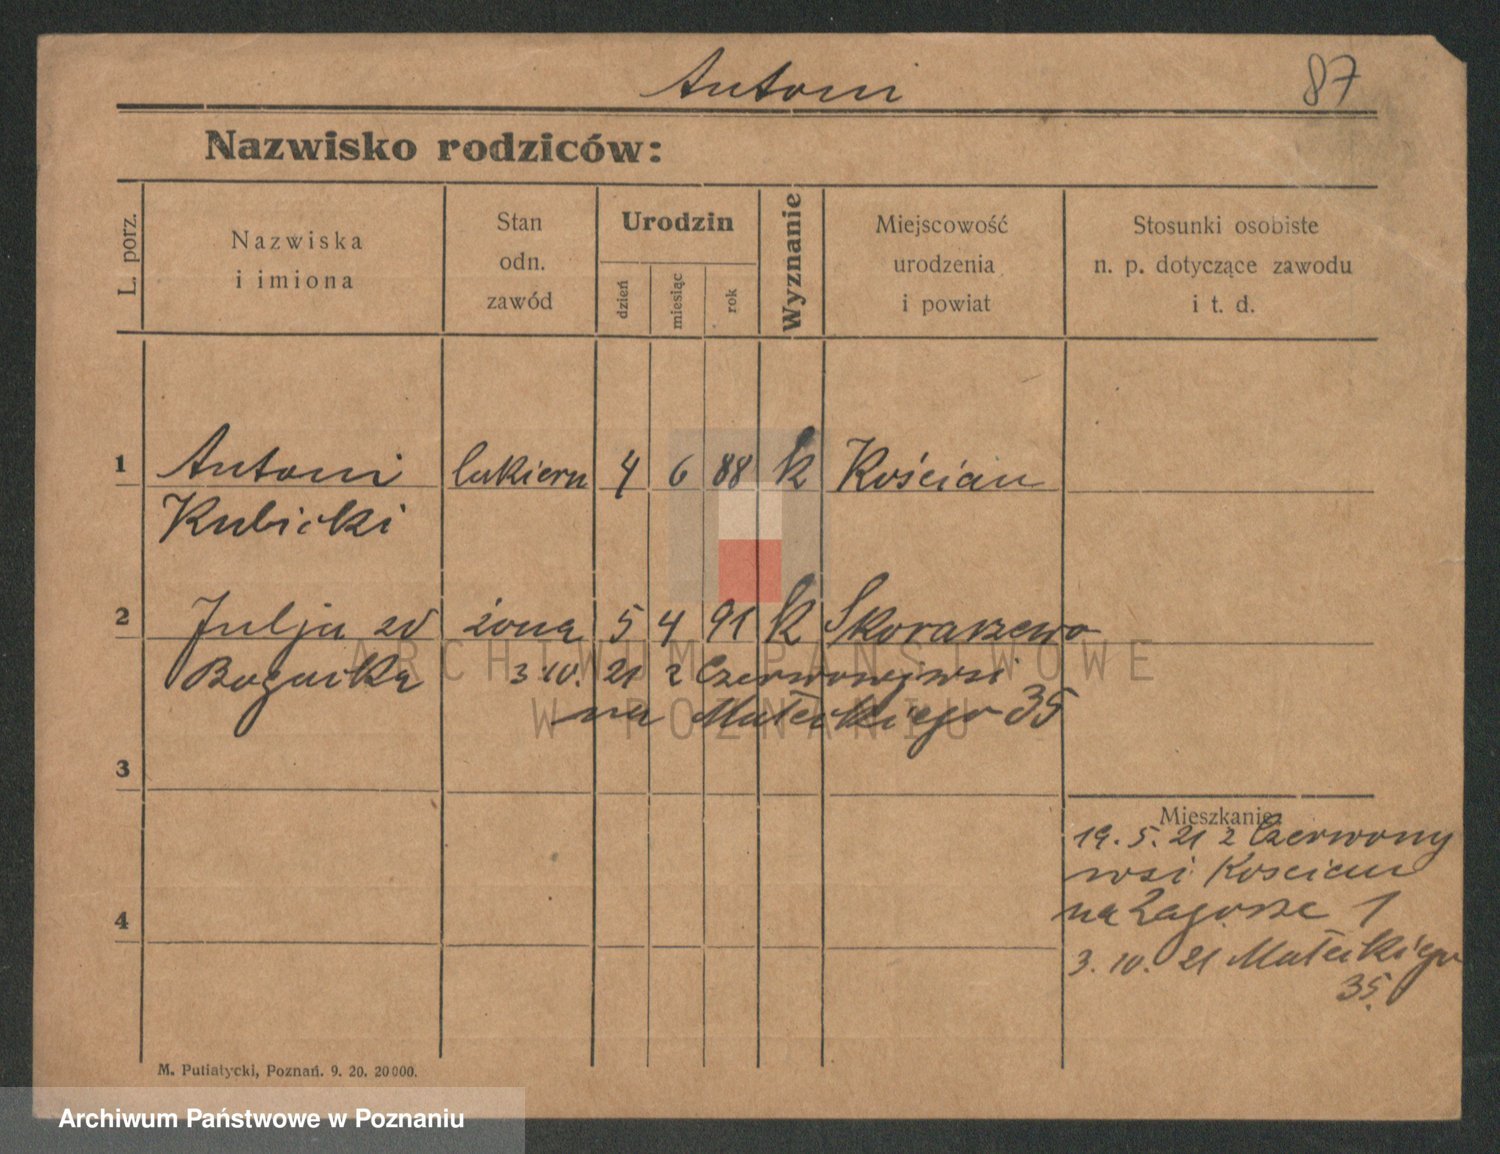 Antoni 87
Nazwisko rodziców:
L. porz.
Nazwiska
i imiona
Stan
odn.
zawód
Urodzin
dzień
miesiąc
rok
Wyznanie
Miejscowość
urodzenia
i powiat
Stosunki osobiste
n. p. dotyczące zawodu
i t. d.
1 Antoni cukiern 4 6 88 k Kościan
Kubicki
2 Julja zd żona 5 4 91 k Skorarzewo
3.10. 21 z Czerwonejwsi
na Małeckiego 35
ARCHIWUM PAŃSTWOWE
W POZNANIU
3
Mieszkanie:
19.5.21 z Czerwony
wsi Koscian
na Zagorze 1
4
3.10.21 Małeckiego
35.
M. Putiatycki, Poznań. 9. 20. 20000.
Archiwum Państwowe w Poznaniu